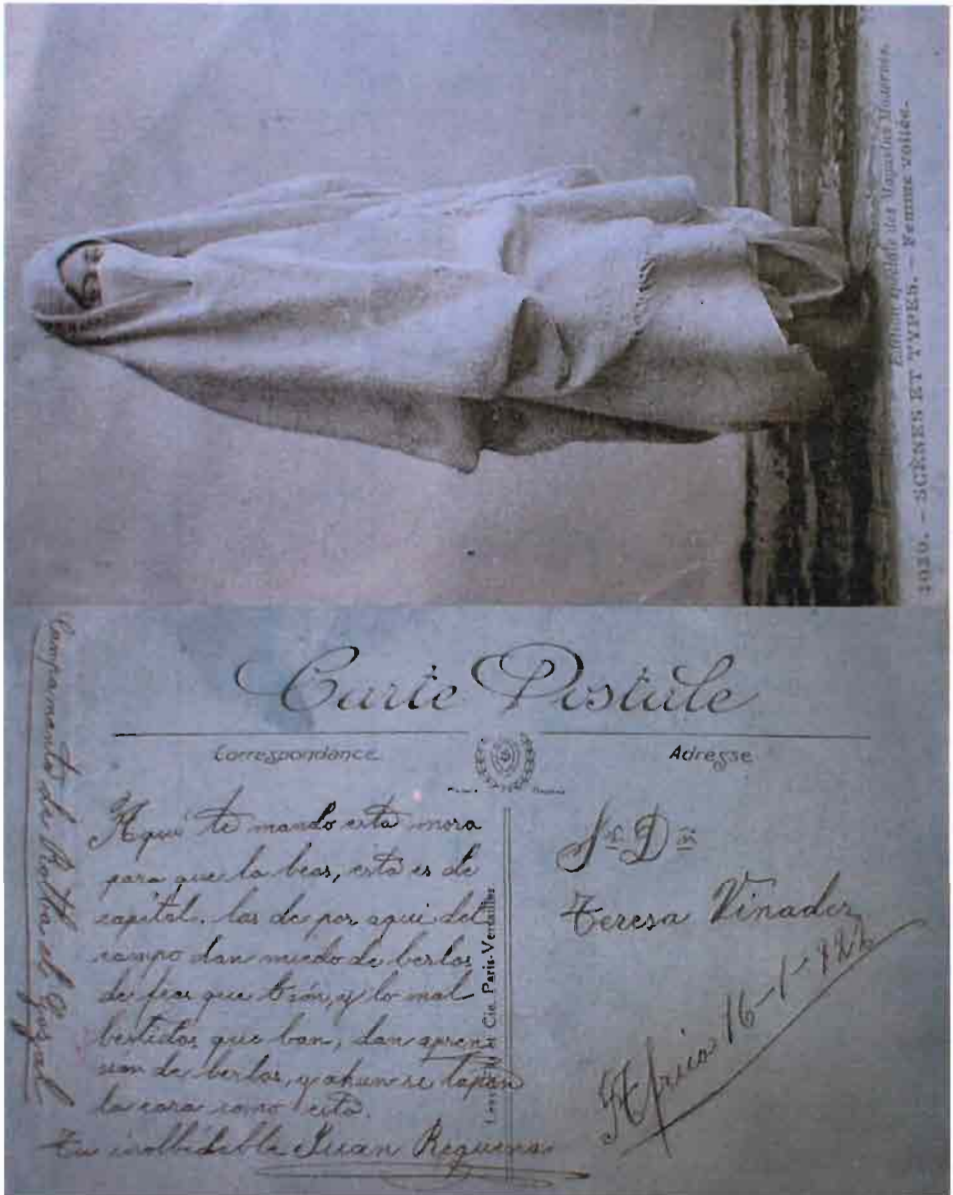 Edition spéciale des Magasins Modernes.
- SCÈNES ET TYPES. - Femme voilée.-
Carte Postale
Correspondance
Adresse
Campamento de
Aqui te mando esta mora
para que la beas, esta es de
capital. las de por aqui del
campo dan miedo de berlas
de feas que són, y lo mal
bestidas que ban, dan apren
sion de berlas, y ahun se tapan
la cara como esta.
Tu inolbidable Juan Requena
Cie. Paris-Versailles
Sra Dña
Teresa Vinader
Africa 16-1-922